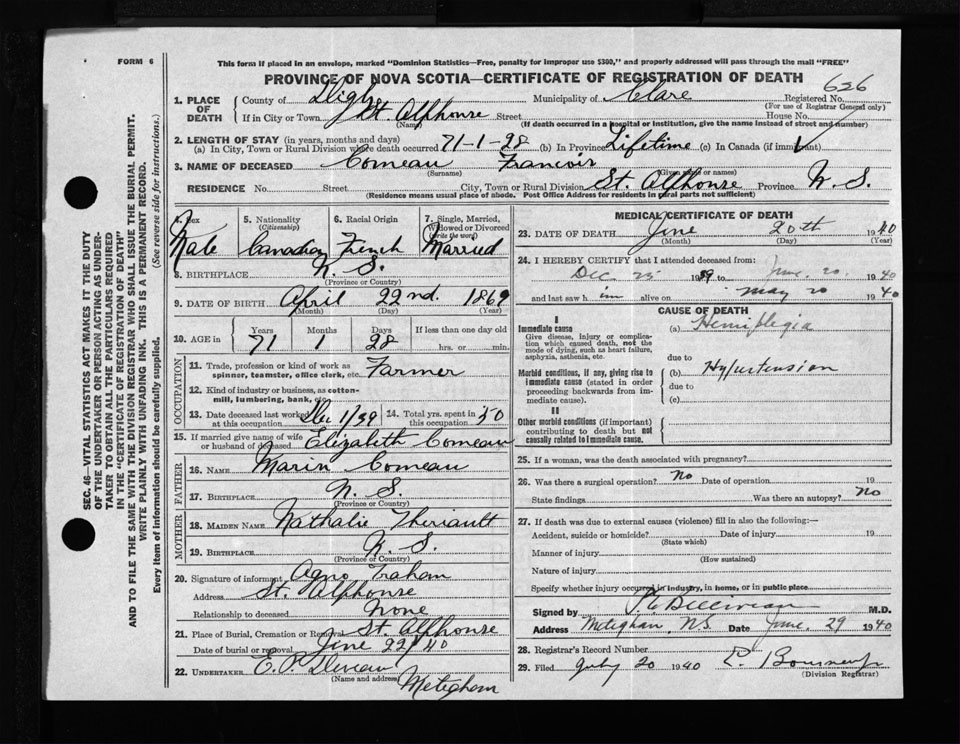 FORM 6
This form if placed in an envelope, marked "Dominion Statistics—Free, penalty for improper use $300," and properly addressed will pass through the mail "FREE"
PROVINCE OF NOVA SCOTIA—CERTIFICATE OF REGISTRATION OF DEATH
626
1. PLACE OF DEATH { County of Digby Municipality of Clare Registered No.
(For use of Registrar General only)
If in City or Town St. Alphonse Street House No.
(Name) (If death occurred in a hospital or institution, give the name instead of street and number)
2. LENGTH OF STAY (in years, months and days)
(a) In City, Town or Rural Division where death occurred 71-1-28 (b) In Province Lifetime (c) In Canada (if immigrant)
3. NAME OF DECEASED Comeau Francois
(Surname) (Given name or names)
RESIDENCE No. Street City, Town or Rural Division St. Alphonse Province N. S.
(Residence means usual place of abode. Post Office Address for residents in rural parts not sufficient)
4. Sex Male
5. Nationality (Citizenship) Canadian
6. Racial Origin French
7. Single, Married, Widowed or Divorced (write the word) Married
8. BIRTHPLACE N. S.
(Province or Country)
9. DATE OF BIRTH April 22nd. 1869
(Month) (Day) (Year)
10. AGE in { Years 71 Months 1 Days 28 If less than one day old
hrs. or min.
OCCUPATION
11. Trade, profession or kind of work as spinner, teamster, office clerk, etc. Farmer
12. Kind of industry or business, as cotton-mill, lumbering, bank, etc.
13. Date deceased last worked at this occupation Dec 1/39 14. Total yrs. spent in this occupation 50
15. If married give name of wife or husband of deceased Elizabeth Comeau
FATHER
16. NAME Marin Comeau
17. BIRTHPLACE N. S.
(Province or Country)
MOTHER
18. MAIDEN NAME Nathalie Theriault
19. BIRTHPLACE N. S.
(Province or Country)
20. Signature of informant
Address St. Alphonse
Relationship to deceased None
21. Place of Burial, Cremation or Removal St. Alphonse
Date of burial or removal June 22/40
22. UNDERTAKER E. P.
(Name and address) Meteghan
MEDICAL CERTIFICATE OF DEATH
23. DATE OF DEATH June 20th 1940
(Month) (Day) (Year)
24. I HEREBY CERTIFY that I attended deceased from:
Dec. 25 1939 to June. 20 1940
and last saw him alive on May 20 1940
CAUSE OF DEATH
I
Immediate cause
Give disease, injury or complication which caused death, not the mode of dying, such as heart failure, asphyxia, asthenia, etc.
(a) Hemiplegia
due to
Morbid conditions, if any, giving rise to immediate cause (stated in order proceeding backwards from immediate cause).
(b) Hypertension
due to
(c)
II
Other morbid conditions (if important) contributing to death but not causally related to immediate cause.
25. If a woman, was the death associated with pregnancy?
26. Was there a surgical operation? No Date of operation 19
State findings Was there an autopsy? No
27. If death was due to external causes (violence) fill in also the following:—
Accident, suicide or homicide? Date of injury 19
(State which)
Manner of injury
(How sustained)
Nature of injury
Specify whether injury occurred in industry, in home, or in public place
Signed by M.D.
Address Meteghan, N.S. Date June. 29 1940
28. Registrar's Record Number
29. Filed July 20 1940
(Division Registrar)
SEC. 46—VITAL STATISTICS ACT MAKES IT THE DUTY
OF THE UNDERTAKER OR PERSON ACTING AS UNDER-
TAKER TO OBTAIN ALL THE PARTICULARS REQUIRED
IN THE "CERTIFICATE OF REGISTRATION OF DEATH"
AND TO FILE THE SAME WITH THE DIVISION REGISTRAR WHO SHALL ISSUE THE BURIAL PERMIT.
WRITE PLAINLY WITH UNFADING INK. THIS IS A PERMANENT RECORD.
Every item of information should be carefully supplied. (See reverse side for instructions.)